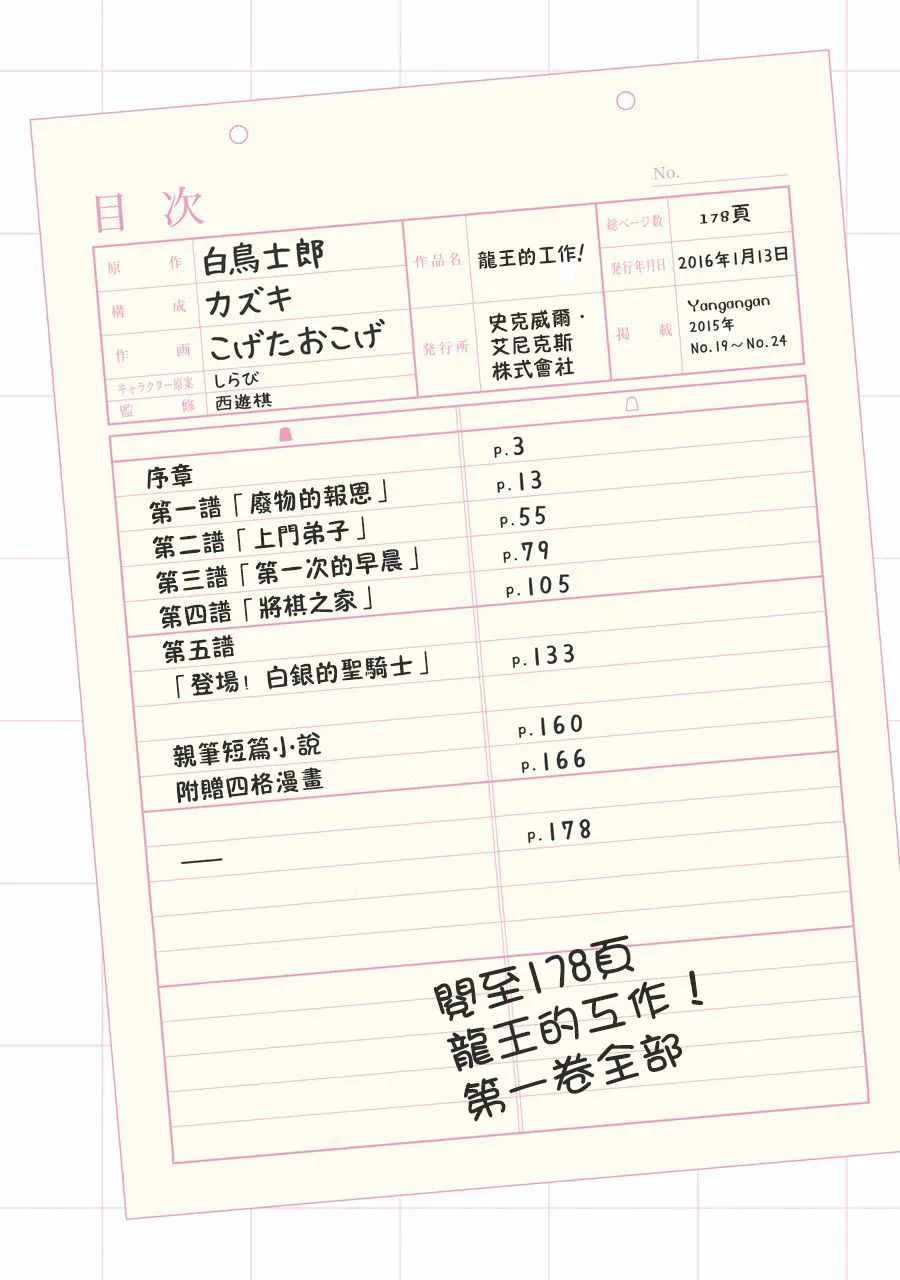 目次
No.
原作 白鳥士郎
構成 カズキ
作画 こげたおこげ
キャラクター原案 しらび
監修 西遊棋
作品名 龍王的工作!
発行所 史克威爾・
艾尼克斯
株式會社
総ページ数 178頁
発行年月日 2016年1月13日
掲載 Yangangan
2015年
No.19～No.24
序章 p.3
第一譜「廢物的報恩」 p.13
第二譜「上門弟子」 p.55
第三譜「第一次的早晨」 p.79
第四譜「將棋之家」 p.105
第五譜
「登場! 白銀的聖騎士」 p.133
親筆短篇小說 p.160
附贈四格漫畫 p.166
—— p.178
閱至178頁
龍王的工作!
第一卷全部